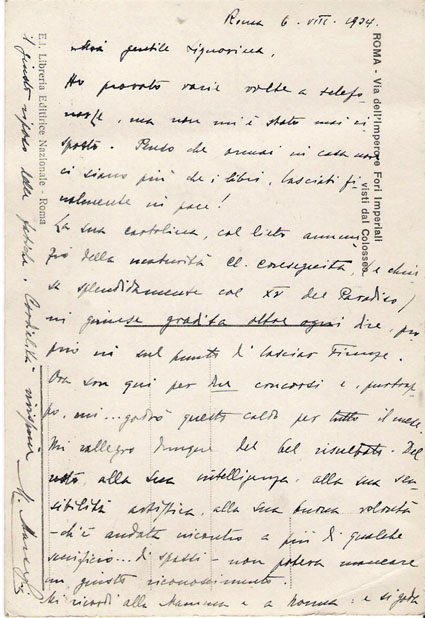 Roma 6. VIII. 1934.
mia gentile Signorina,
Ho provato varie volte a telefo-
narle, ma non mi è stato mai ri-
sposto. Penso che ormai in casa non
ci siano più che i libri, lasciati fi-
nalmente in pace!
La sua cartolina, col lieto annun-
zio della maturità cl. conseguita, (e chiu-
sa splendidamente col XV del Paradiso)
mi giunse gradita oltre ogni dire, pro-
prio in sul punto di lasciar Firenze.
Ora son qui per due concorsi e, purtrop-
po, mi... godrò questo caldo per tutto il mese.
Mi rallegro dunque del bel risultato. Del
resto, alla sua intelligenza, alla sua sen-
sibilità artistica, alla sua buona volontà
- ch'è andata incontro a più di qualche
sacrificio... di spassi - non poteva mancare
un giusto riconoscimento.
Mi ricordi alla Mamma e a nonna: e si goda
il giusto riposo delle fatiche. Cordialità
ROMA - Via dell'Impero e Fori Imperiali
visti dal Colosseo
E.L. Libreria Editrice Nazionale - Roma